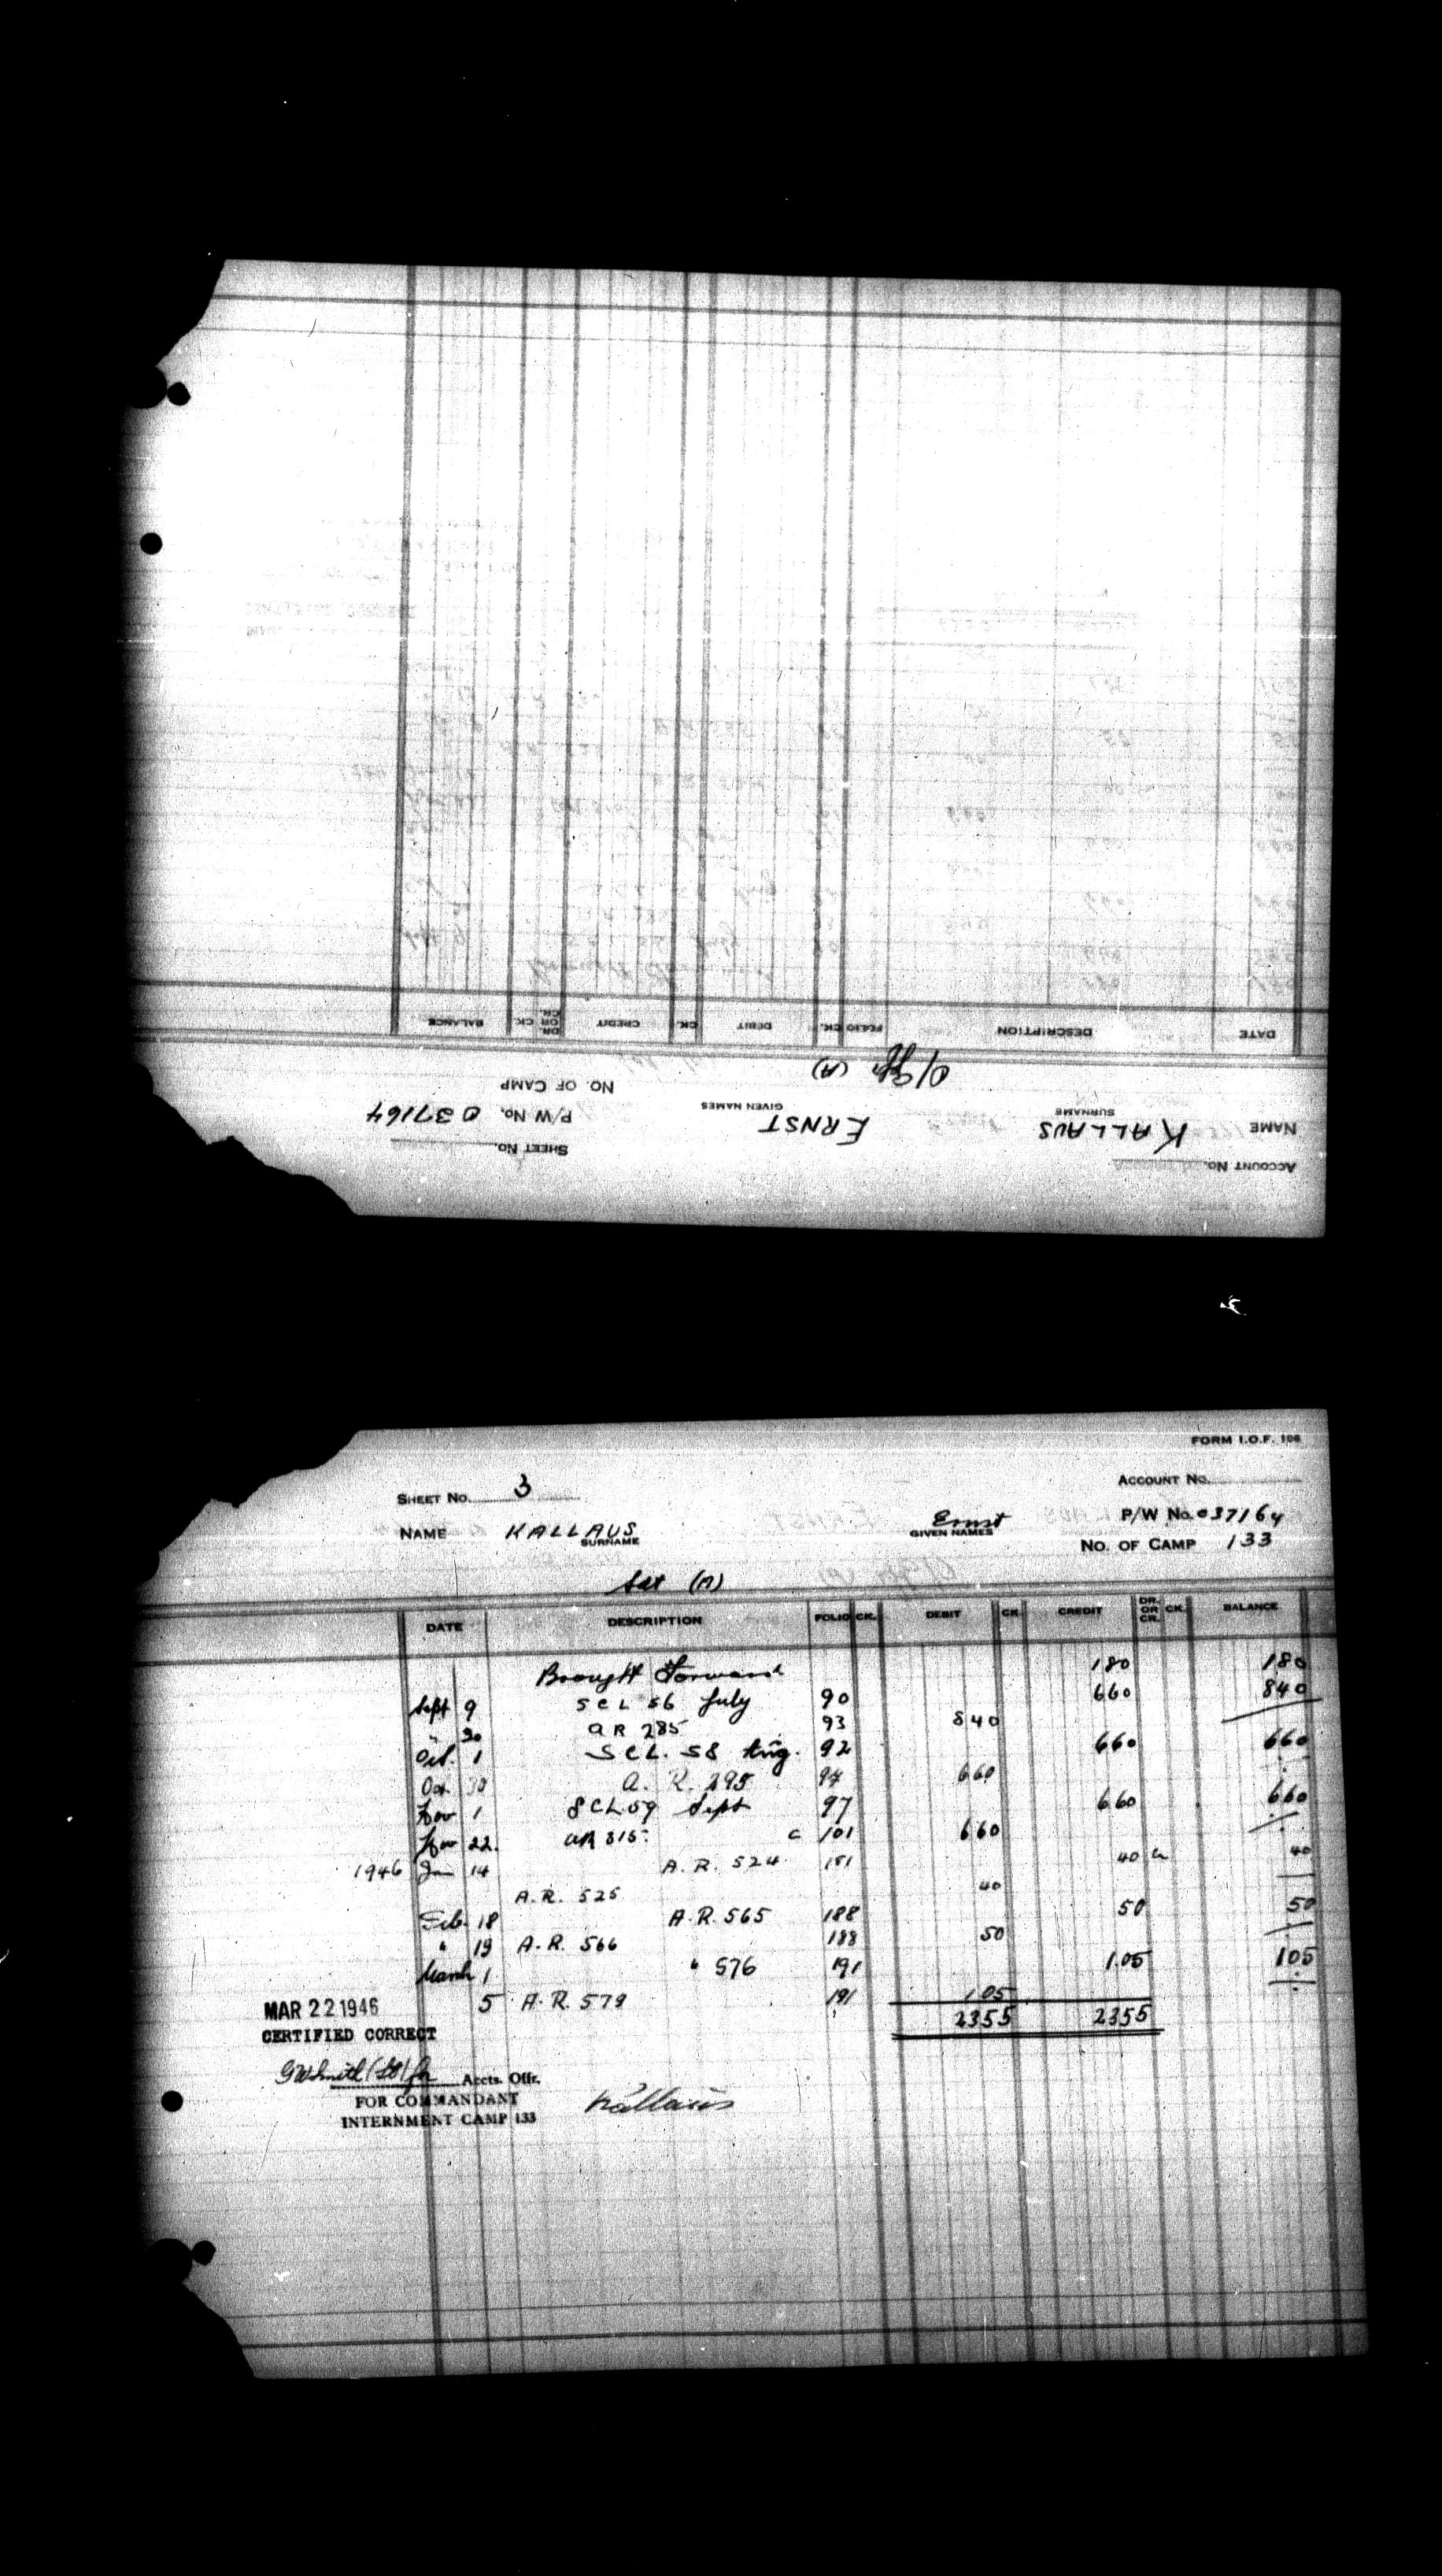 ACCOUNT No.
SHEET No.
NAME KALLAUS ERNST P/W No. 037164
SURNAME GIVEN NAMES
NO. OF CAMP
(A)
DATE DESCRIPTION FOLIO CK. DEBIT CK. CREDIT DR. OR CR. CK. BALANCE
FORM I.O.F. 106
SHEET No. 3 ACCOUNT No.
NAME KALLAUS Ernst P/W No. 037164
SURNAME GIVEN NAMES
NO. OF CAMP 133
(A)
DATE DESCRIPTION FOLIO CK. DEBIT CK. CREDIT DR. OR CR. CK. BALANCE
Brought Forward 180 180
Sept 9 SCL 56 July 90 660 840
" 20 AR 285 93 840
Oct. 1 SCL. 58 Aug. 92 660 660
Oct 30 A. R. 295 94 660
Nov 1 SCL 59 Sept 97 660 660
Nov 22. AR 315. c 101 660
1946 Jan 14 A. R. 524 181 40 40
A.R. 525 40
Feb. 18 A.R. 565 188 50 50
" 19 A.R. 566 188 50
March 1 " 576 191 1.05 105
5 A.R. 579 191 1.05
2355 2355
MAR 22 1946
CERTIFIED CORRECT
GWSmith (Lt) for Accts. Offr.
FOR COMMANDANT
INTERNMENT CAMP 133
Kallaus